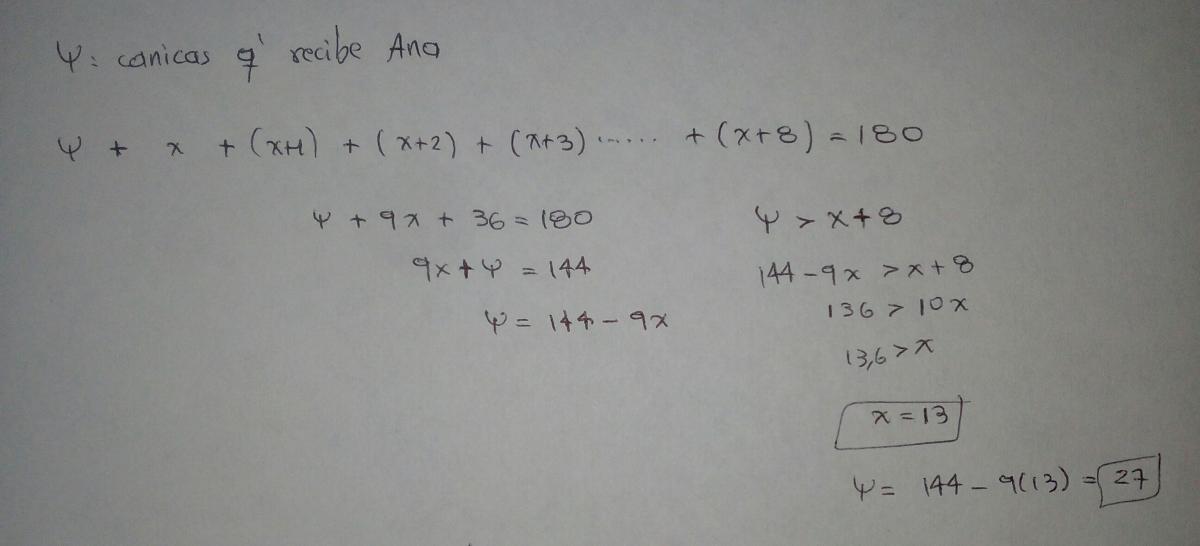 Ψ: canicas q' recibe Ana
Ψ + x + (x+1) + (x+2) + (x+3) ...... + (x+8) = 180
Ψ + 9x + 36 = 180
9x + Ψ = 144
Ψ = 144 - 9x
Ψ > x+8
144 - 9x > x + 8
136 > 10x
13,6 > x
x = 13
Ψ = 144 - 9(13) = 27